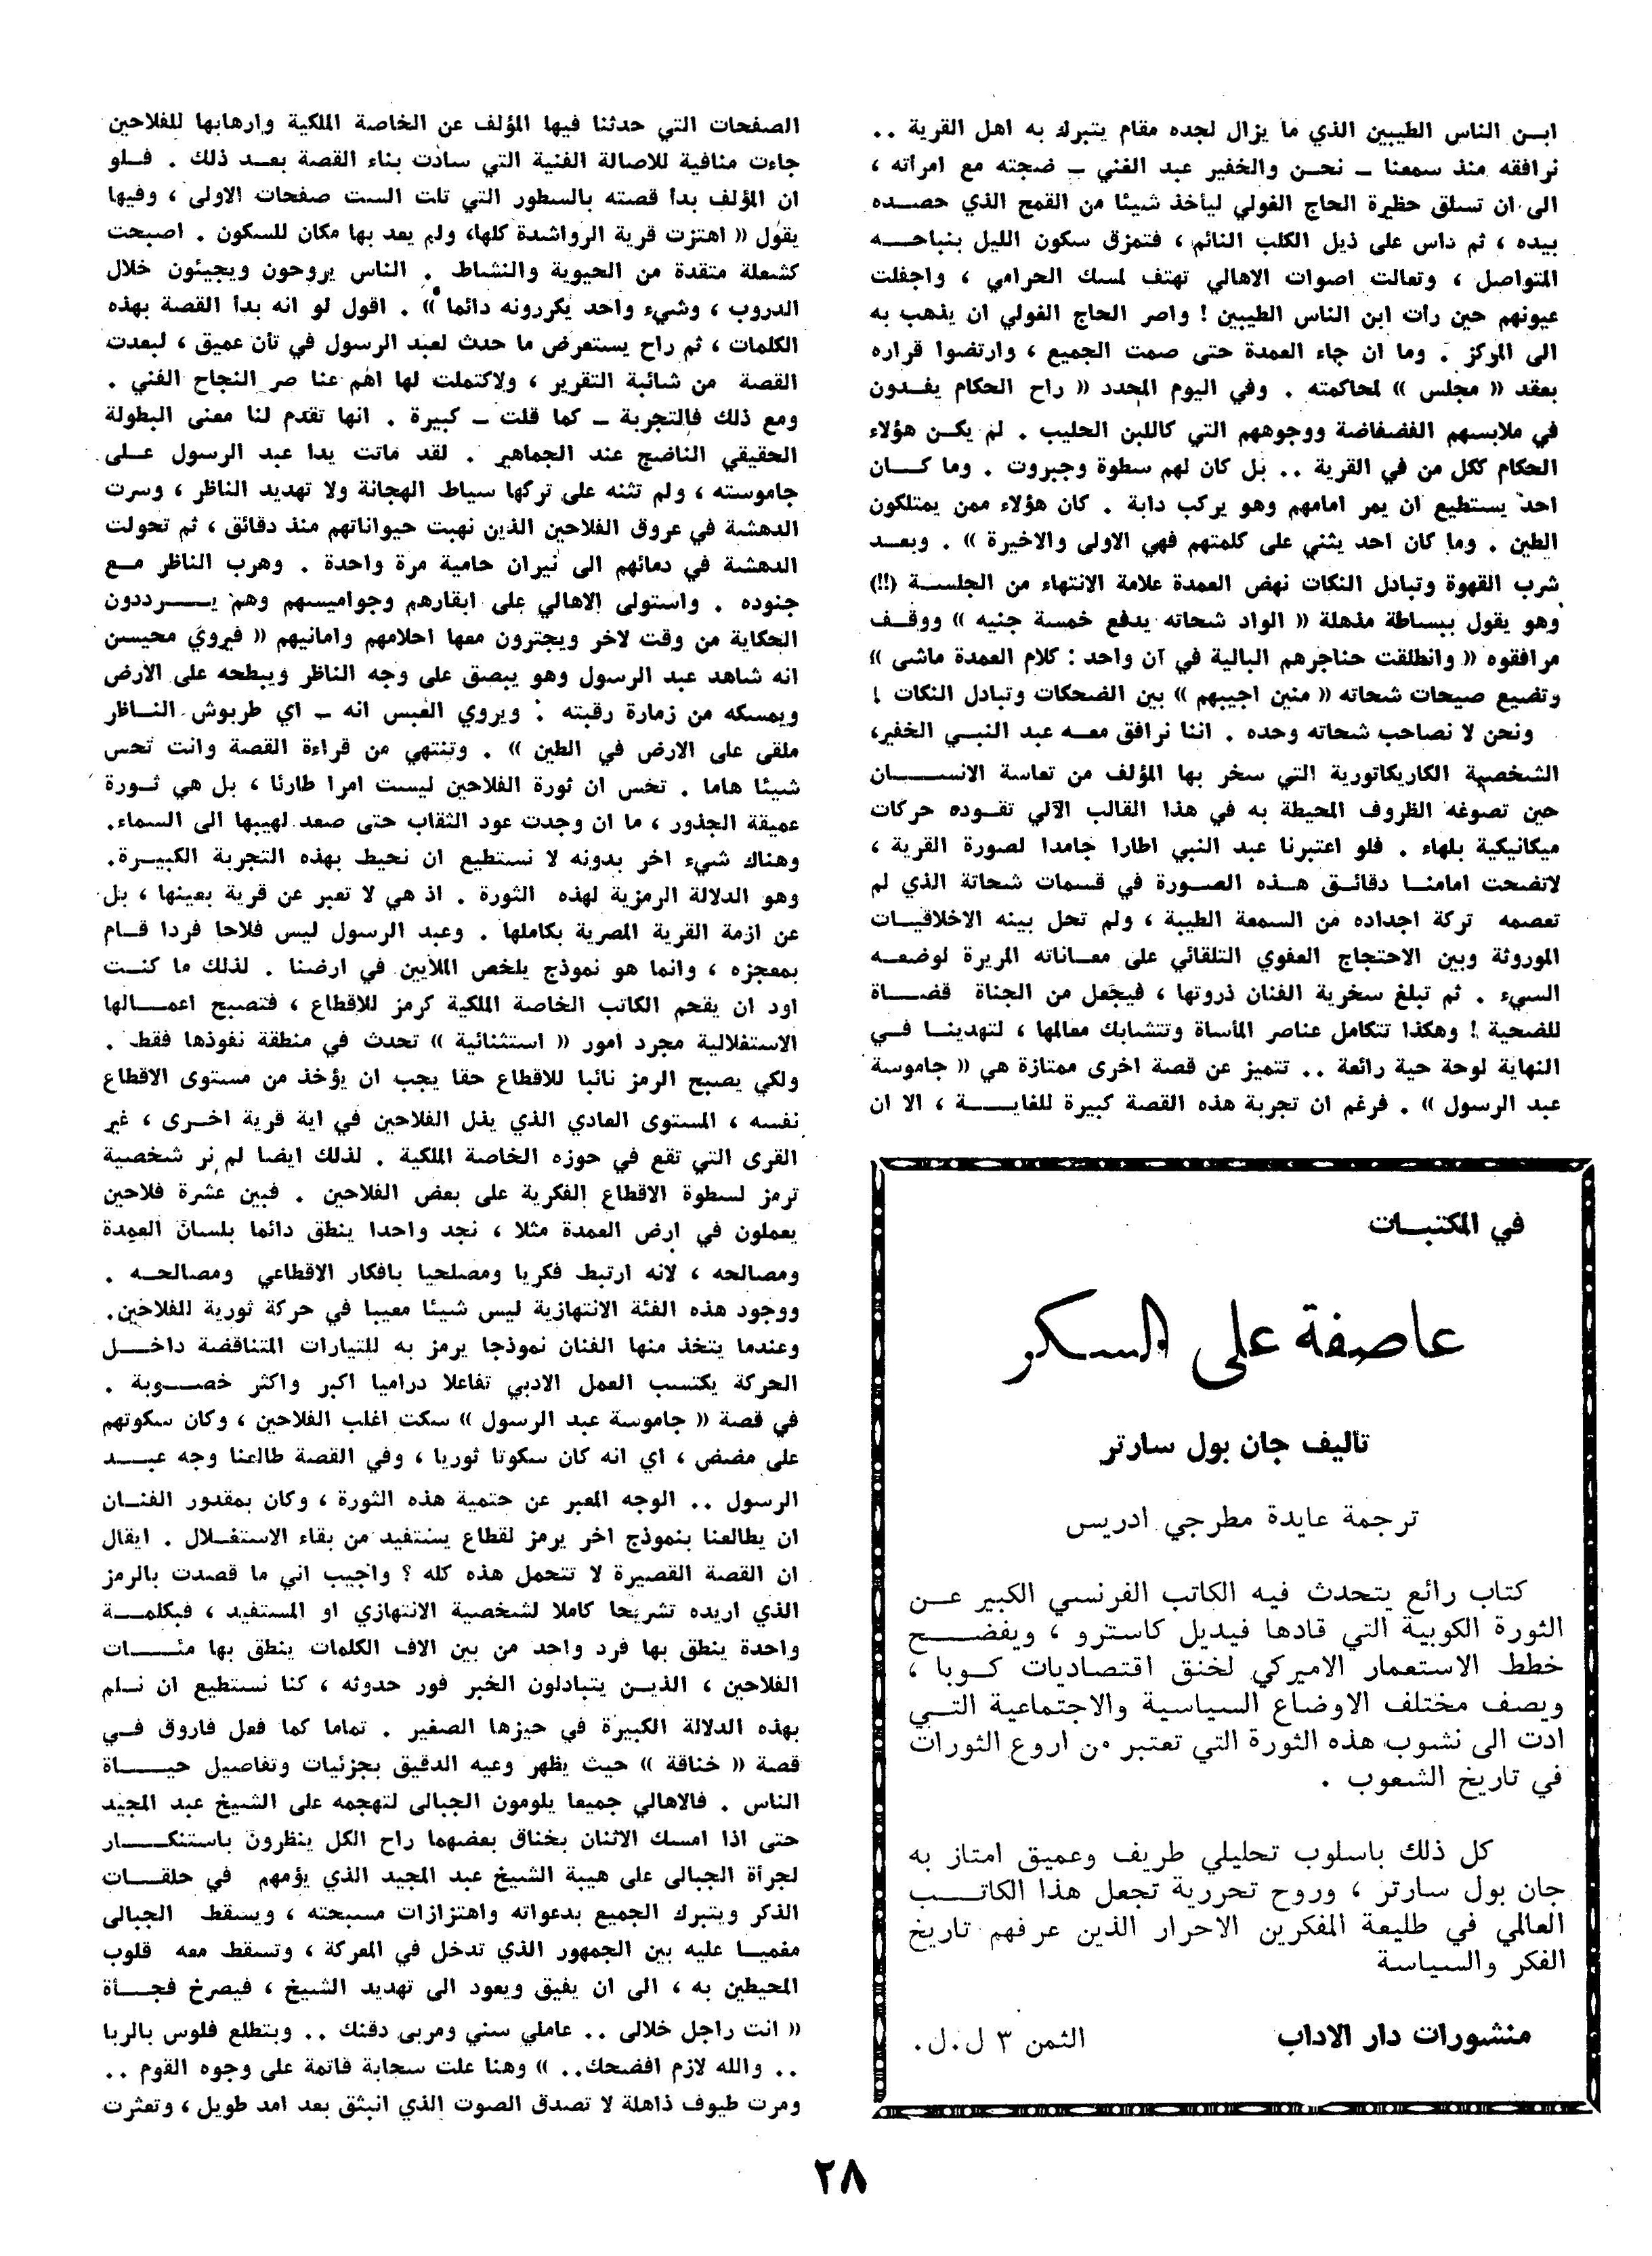 ابن الناس الطيبين الذي ما يزال لجده مقام يتبرك به اهل القرية ..
نرافقه منذ سمعنا - نحن والخفير عبد الغني - ضجته مع امرأته ،
الى ان تسلق حظيرة الحاج الفولي ليأخذ شيئا من القمح الذي حصده
بيده ، ثم داس على ذيل الكلب النائم ، فتمزق سكون الليل بنباحه
المتواصل ، وتعالت اصوات الاهالي تهتف لمسك الحرامي ، واجفلت
عيونهم حين رأت ابن الناس الطيبين ! واصر الحاج الفولي ان يذهب به
الى المركز . وما ان جاء العمدة حتى صمت الجميع ، وارتضوا قراره
بعقد « مجلس » لمحاكمته . وفي اليوم المحدد « راح الحكام يفدون
في ملابسهم الفضفاضة ووجوههم التي كاللبن الحليب . لم يكن هؤلاء
الحكام ككل من في القرية .. بل كان لهم سطوة وجبروت . وما كان
احد يستطيع ان يمر امامهم وهو يركب دابة . كان هؤلاء ممن يمتلكون
الطين . وما كان احد يثني على كلمتهم فهي الاولى والاخيرة » . وبعد
شرب القهوة وتبادل النكات نهض العمدة علامة الانتهاء من الجلسة (!!)
وهو يقول ببساطة مذهلة « الواد شحاته يدفع خمسة جنيه » ووقف
مرافقوه « وانطلقت حناجرهم البالية في آن واحد : كلام العمدة ماشى »
وتضيع صيحات شحاته « منين اجيبهم » بين الضحكات وتبادل النكات !
ونحن لا نصاحب شحاته وحده . اننا نرافق معه عبد النبي الخفير،
الشخصية الكاريكاتورية التي سخر بها المؤلف من تعاسة الانسان
حين تصوغه الظروف المحيطة به في هذا القالب الآلي تقوده حركات
ميكانيكية بلهاء . فلو اعتبرنا عبد النبي اطارا جامدا لصورة القرية ،
لاتضحت امامنا دقائق هذه الصورة في قسمات شحاتة الذي لم
تعصمه تركة اجداده من السمعة الطيبة ، ولم تحل بينه الاخلاقيات
الموروثة وبين الاحتجاج العفوي التلقائي على معاناته المريرة لوضعه
السيء . ثم تبلغ سخرية الفنان ذروتها ، فيجعل من الجناة قضاة
للضحية ! وهكذا تتكامل عناصر المأساة وتتشابك معالمها ، لتهدينا في
النهاية لوحة حية رائعة .. تتميز عن قصة اخرى ممتازة هي « جاموسة
عبد الرسول » . فرغم ان تجربة هذه القصة كبيرة للغاية ، الا ان
في المكتبات
عاصفة على السكر
تأليف جان بول سارتر
ترجمة عايدة مطرجي ادريس
كتاب رائع يتحدث فيه الكاتب الفرنسي الكبير عن
الثورة الكوبية التي قادها فيديل كاسترو ، ويفضح
خطط الاستعمار الاميركي لخنق اقتصاديات كوبا ،
ويصف مختلف الاوضاع السياسية والاجتماعية التي
ادت الى نشوب هذه الثورة التي تعتبر من اروع الثورات
في تاريخ الشعوب .
كل ذلك باسلوب تحليلي طريف وعميق امتاز به
جان بول سارتر ، وروح تحررية تجعل هذا الكاتب
العالمي في طليعة المفكرين الاحرار الذين عرفهم تاريخ
الفكر والسياسة
منشورات دار الاداب
الثمن ٣ ل.ل.
الصفحات التي حدثنا فيها المؤلف عن الخاصة الملكية وارهابها للفلاحين
جاءت منافية للاصالة الفنية التي سادت بناء القصة بعد ذلك . فلو
ان المؤلف بدأ قصته بالسطور التي تلت الست صفحات الاولى ، وفيها
يقول « اهتزت قرية الرواشدة كلها، ولم يعد بها مكان للسكون . اصبحت
كشعلة متقدة من الحيوية والنشاط . الناس يروحون ويجيئون خلال
الدروب ، وشيء واحد يكررونه دائما » . اقول لو انه بدأ القصة بهذه
الكلمات ، ثم راح يستعرض ما حدث لعبد الرسول في تأن عميق ، لبعدت
القصة من شائبة التقرير ، ولاكتملت لها اهم عنا صر النجاح الفني .
ومع ذلك فالتجربة - كما قلت - كبيرة . انها تقدم لنا معنى البطولة
الحقيقي الناضج عند الجماهير . لقد ماتت يدا عبد الرسول على
جاموسته ، ولم تثنه على تركها سياط الهجانة ولا تهديد الناظر ، وسرت
الدهشة في عروق الفلاحين الذين نهبت حيواناتهم منذ دقائق ، ثم تحولت
الدهشة في دمائهم الى نيران حامية مرة واحدة . وهرب الناظر مع
جنوده . واستولى الاهالي على ابقارهم وجواميسهم وهم يرددون
الحكاية من وقت لاخر ويجترون معها احلامهم وامانيهم « فيروي محيسن
انه شاهد عبد الرسول وهو يبصق على وجه الناظر ويبطحه على الارض
ويمسكه من زمارة رقبته : ويروي الغبس انه - اي طربوش الناظر
ملقى على الارض في الطين » . وتنتهي من قراءة القصة وانت تحس
شيئا هاما . تحس ان ثورة الفلاحين ليست امرا طارئا ، بل هي ثورة
عميقة الجذور ، ما ان وجدت عود الثقاب حتى صعد لهيبها الى السماء.
وهناك شيء اخر بدونه لا نستطيع ان نحيط بهذه التجربة الكبيرة.
وهو الدلالة الرمزية لهذه الثورة . اذ هي لا تعبر عن قرية بعينها ، بل
عن ازمة القرية المصرية بكاملها . وعبد الرسول ليس فلاحا فردا قام
بمعجزه ، وانما هو نموذج يلخص الملايين في ارضنا . لذلك ما كنت
اود ان يقحم الكاتب الخاصة الملكية كرمز للاقطاع ، فتصبح اعمالها
الاستغلالية مجرد امور « استثنائية » تحدث في منطقة نفوذها فقط .
ولكي يصبح الرمز نائبا للاقطاع حقا يجب ان يؤخذ من مستوى الاقطاع
نفسه ، المستوى العادي الذي يذل الفلاحين في اية قرية اخرى ، غير
القرى التي تقع في حوزه الخاصة الملكية . لذلك ايضا لم نر شخصية
ترمز لسطوة الاقطاع الفكرية على بعض الفلاحين . فبين عشرة فلاحين
يعملون في ارض العمدة مثلا ، نجد واحدا ينطق دائما بلسان العمدة
ومصالحه ، لانه ارتبط فكريا ومصلحيا بافكار الاقطاعي ومصالحه .
ووجود هذه الفئة الانتهازية ليس شيئا معيبا في حركة ثورية للفلاحين.
وعندما يتخذ منها الفنان نموذجا يرمز به للتيارات المتناقضة داخل
الحركة يكتسب العمل الادبي تفاعلا دراميا اكبر واكثر خصوبة .
في قصة « جاموسة عبد الرسول » سكت اغلب الفلاحين ، وكان سكوتهم
على مضض ، اي انه كان سكوتا ثوريا ، وفي القصة طالعنا وجه عبد
الرسول .. الوجه المعبر عن حتمية هذه الثورة ، وكان بمقدور الفنان
ان يطالعنا بنموذج اخر يرمز لقطاع يستفيد من بقاء الاستغلال . ايقال
ان القصة القصيرة لا تتحمل هذه كله ؟ واجيب اني ما قصدت بالرمز
الذي اريده تشريحا كاملا لشخصية الانتهازي او المستفيد ، فبكلمة
واحدة ينطق بها فرد واحد من بين الاف الكلمات ينطق بها مئات
الفلاحين ، الذين يتبادلون الخبر فور حدوثه ، كنا نستطيع ان نلم
بهذه الدلالة الكبيرة في حيزها الصغير . تماما كما فعل فاروق في
قصة « خناقة » حيث يظهر وعيه الدقيق بجزئيات وتفاصيل حياة
الناس . فالاهالي جميعا يلومون الجبالى لتهجمه على الشيخ عبد المجيد
حتى اذا امسك الاثنان بخناق بعضهما راح الكل ينظرون باستنكار
لجرأة الجبالى على هيبة الشيخ عبد المجيد الذي يؤمهم في حلقات
الذكر ويتبرك الجميع بدعواته واهتزازات مسبحته ، ويسقط الجبالى
مغميا عليه بين الجمهور الذي تدخل في المعركة ، وتسقط معه قلوب
المحيطين به ، الى ان يفيق ويعود الى تهديد الشيخ ، فيصرخ فجأة
« انت راجل خلالى .. عاملي سني ومربى دقنك .. وبتطلع فلوس بالربا
.. والله لازم افضحك.. » وهنا علت سحابة قاتمة على وجوه القوم ..
ومرت طيوف ذاهلة لا تصدق الصوت الذي انبثق بعد امد طويل ، وتعثرت
٢٨